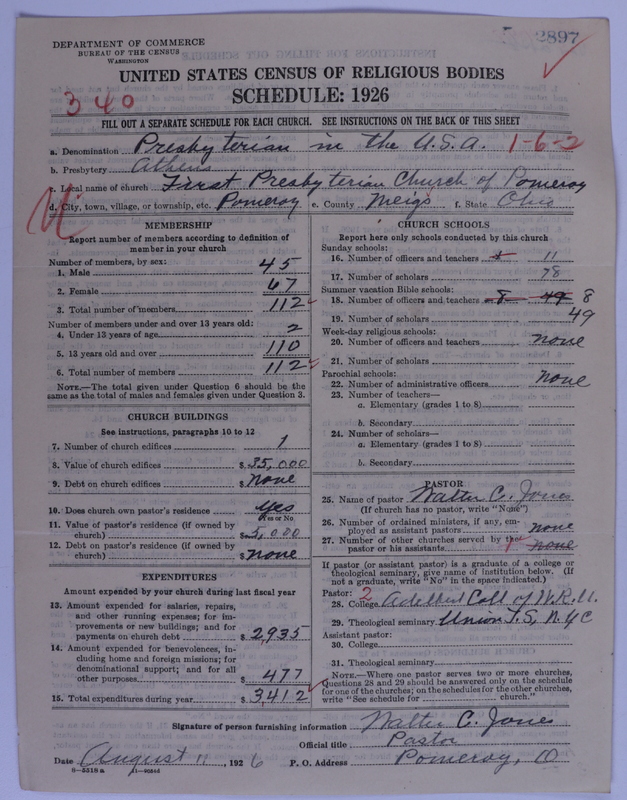 2897
DEPARTMENT OF COMMERCE
BUREAU OF THE CENSUS
WASHINGTON
UNITED STATES CENSUS OF RELIGIOUS BODIES
340
SCHEDULE: 1926
FILL OUT A SEPARATE SCHEDULE FOR EACH CHURCH. SEE INSTRUCTIONS ON THE BACK OF THIS SHEET
a. Denomination Presbyterian in the U.S.A. 1-6-2
b. Presbytery Athens
c. Local name of church First Presbyterian Church of Pomeroy
d. City, town, village, or township, etc. Pomeroy e. County Meigs f. State Ohio
MEMBERSHIP
Report number of members according to definition of
member in your church
Number of members, by sex:
1. Male 45
2. Female 67
3. Total number of members 112
Number of members under and over 13 years old:
4. Under 13 years of age 2
5. 13 years old and over 110
6. Total number of members 112
NOTE.—The total given under Question 6 should be
same as the total of males and females given under Question 3.
CHURCH BUILDINGS
See instructions, paragraphs 10 to 12
7. Number of church edifices 1
8. Value of church edifices $35,000
9. Debt on church edifices $none
10. Does church own pastor's residence yes
Yes or No
11. Value of pastor's residence (if owned by
church) $5,000
12. Debt on pastor's residence (if owned by
church) $none
EXPENDITURES
Amount expended by your church during last fiscal year
13. Amount expended for salaries, repairs,
and other running expenses; for im-
provements or new buildings; and for
payments on church debt $2,935
14. Amount expended for benevolences, in-
cluding home and foreign missions; for
denominational support; and for all
other purposes $477
15. Total expenditures during year $3,412
CHURCH SCHOOLS
Report here only schools conducted by this church
Sunday schools:
16. Number of officers and teachers 11
17. Number of scholars 78
Summer vacation Bible schools:
18. Number of officers and teachers 8 49 8
19. Number of scholars 49
Week-day religious schools:
20. Number of officers and teachers none
21. Number of scholars
Parochial schools:
22. Number of administrative officers none
23. Number of teachers—
a. Elementary (grades 1 to 8)
b. Secondary
24. Number of scholars—
a. Elementary (grades 1 to 8)
b. Secondary
PASTOR
25. Name of pastor Walter C. Jones
(If church has no pastor, write "None")
26. Number of ordained ministers, if any, em-
ployed as assistant pastors none
27. Number of other churches served by
pastor or his assistants 1 none
If pastor (or assistant pastor) is a graduate of a college or
theological seminary, give name of institution below. (If
not a graduate, write "No" in the space indicated.)
Pastor: 2
28. College Adelbert Coll of W.R.U.
29. Theological seminary Union T.S., N.Y.C
Assistant pastor:
30. College
31. Theological seminary
NOTE.—Where one pastor serves two or more churches,
Questions 28 and 29 should be answered only on the schedule
for one of the churches; on the schedules for the other churches,
write "See schedule for church."
Signature of person furnishing information Walter C. Jones
Official title Pastor
Date August 11, 1926 P. O. Address Pomeroy, O
8—5518a